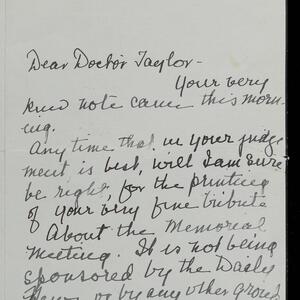 Dear Doctor Taylor -
Your very
kind note came this morn-
ing.
Any time that, in your judge
ment, is best, will I am sure
be right, for the printing
of your very fine tribute
About the Memorial
Meeting. It is not being
sponsored by the Daily
News, or by any other group